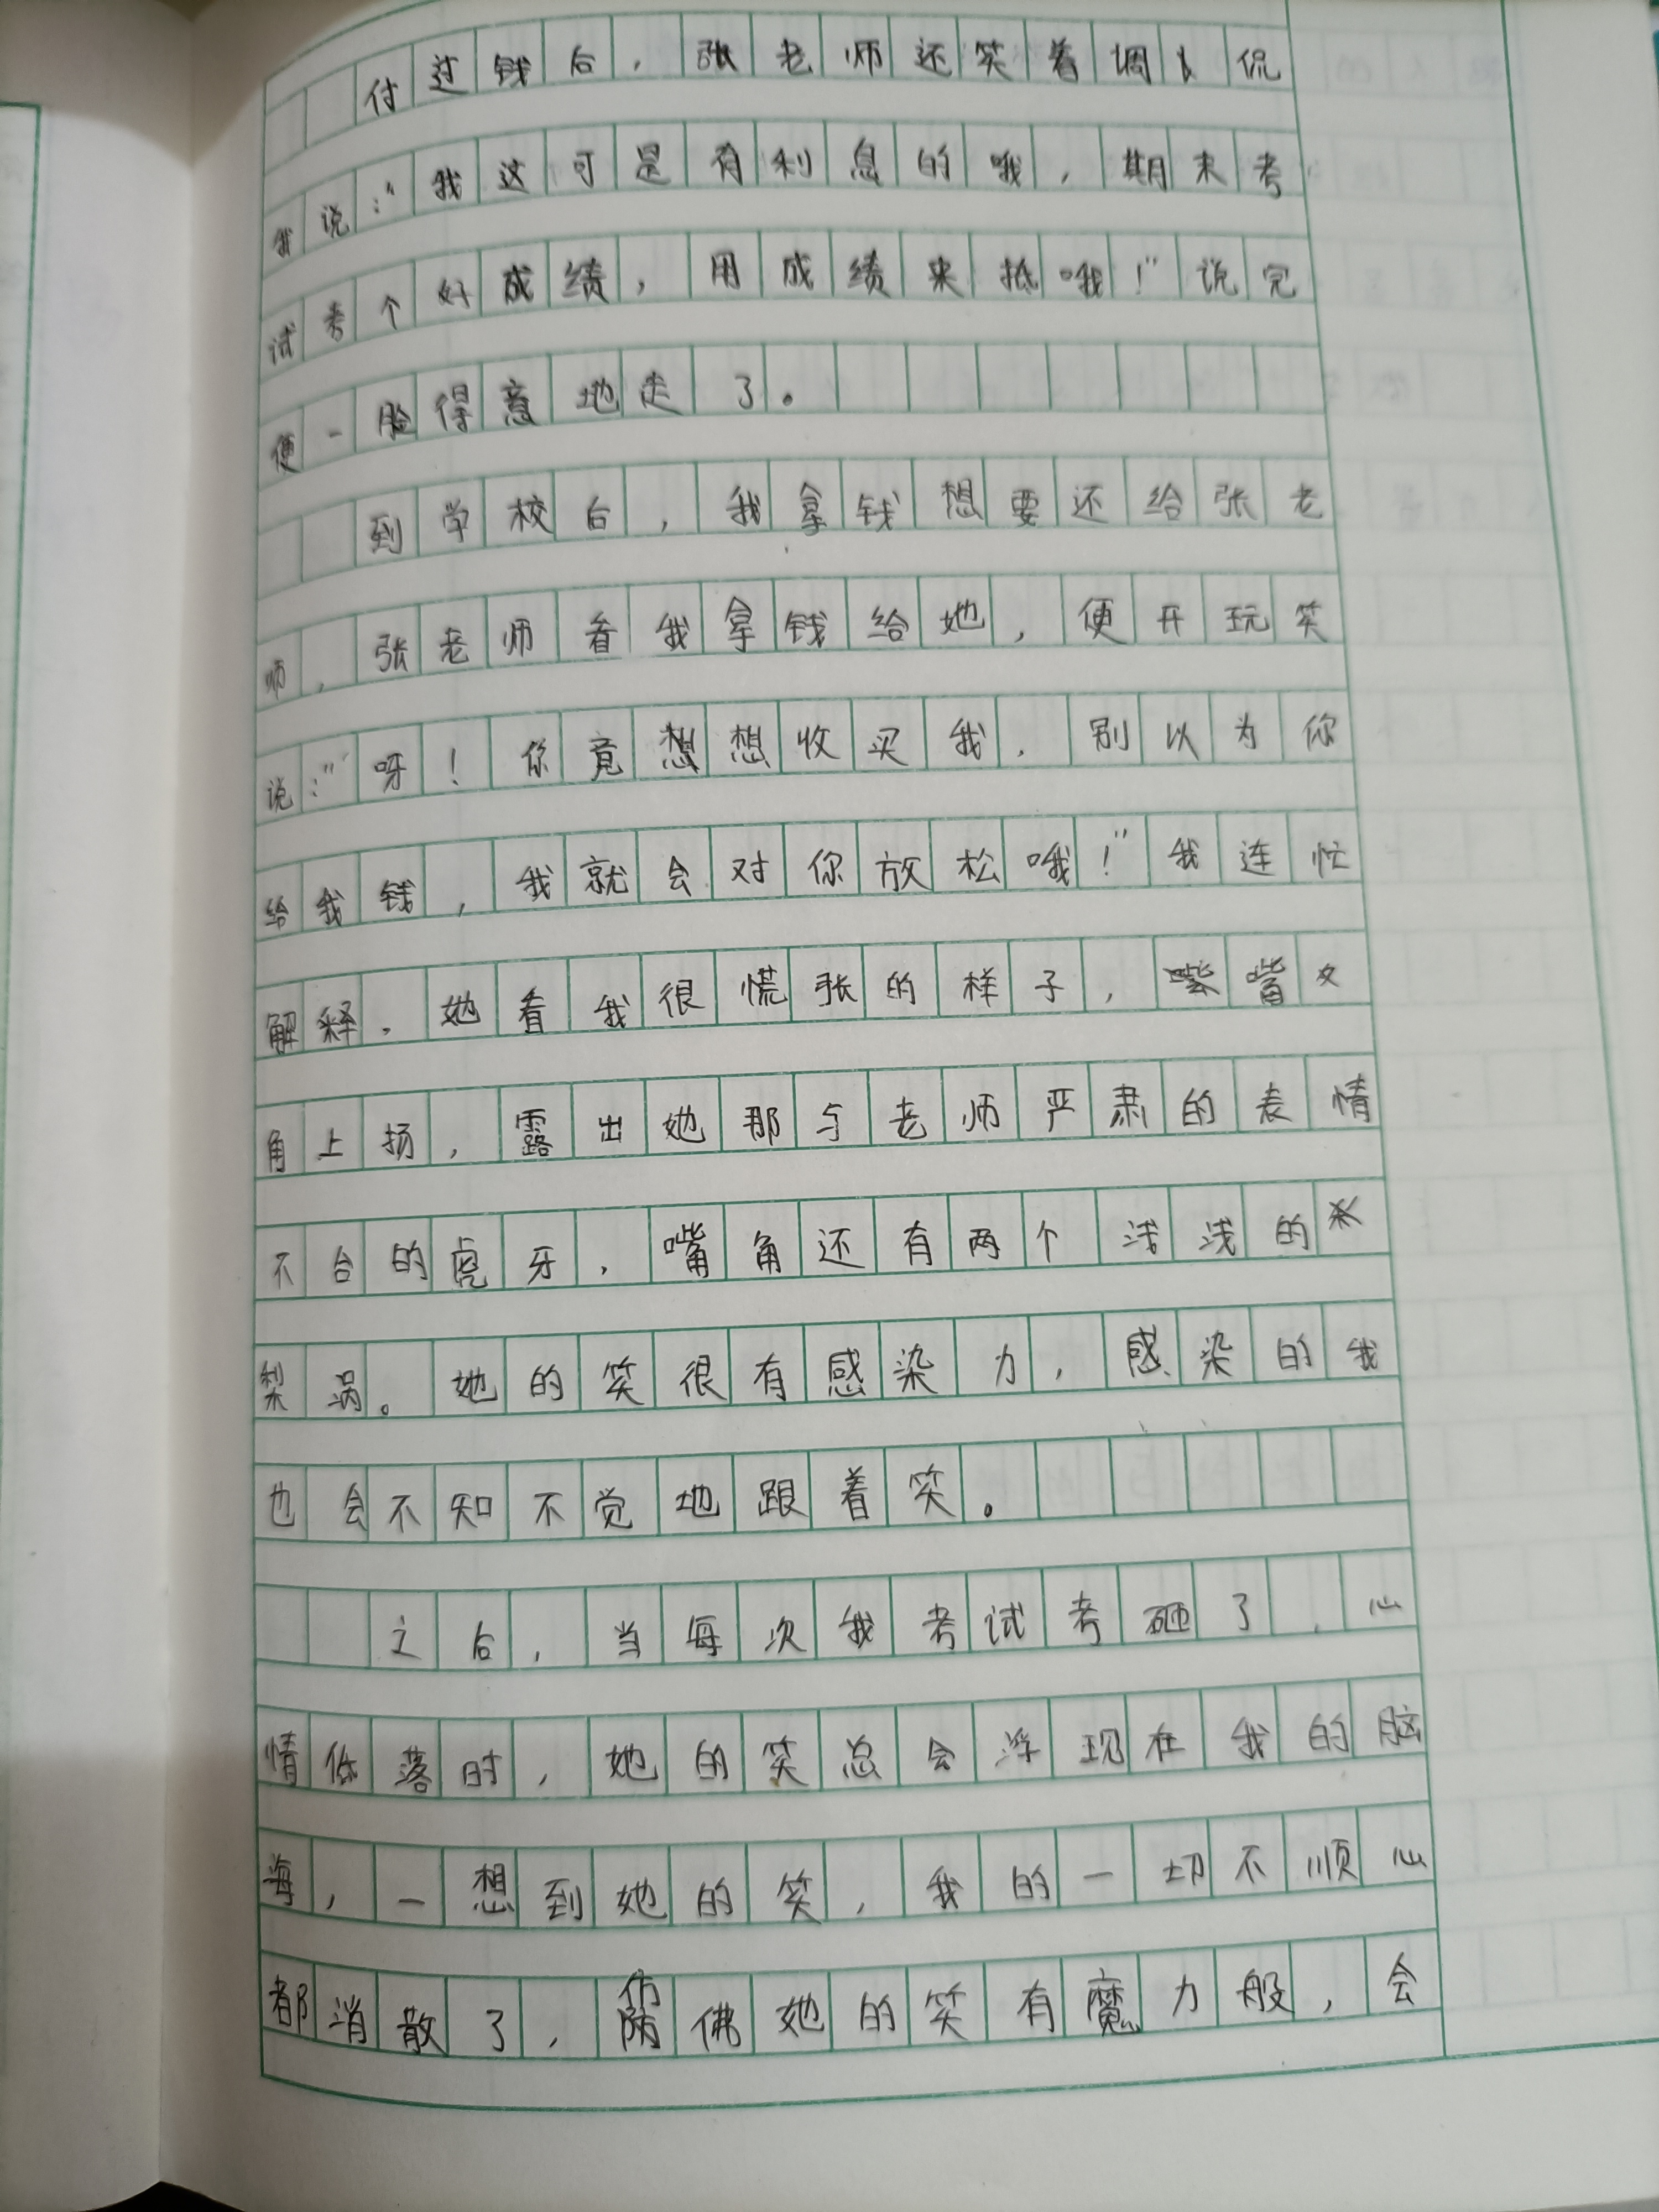 付过钱后，张老师还笑着调侃
我说:"我这可是有利息的哦，期末考
试考个好成绩，用成绩来抵哦！"说完
便一脸得意地走了。
到学校后，我拿钱想要还给张老
师，张老师看我拿钱给她，便开玩笑
说:"呀！你竟想收买我，别以为你
给我钱，我就会对你放松哦！"我连忙
解释，她看我很慌张的样子，嘴
角上扬，露出她那与老师严肃的表情
不合的虎牙，嘴角还有两个浅浅的
梨涡。她的笑很有感染力，感染的我
也会不知不觉地跟着笑。
之后，当每次我考试考砸了，心
情低落时，她的笑总会浮现在我的脑
海，一想到她的笑，我的一切不顺心
都消散了，仿佛她的笑有魔力般，会